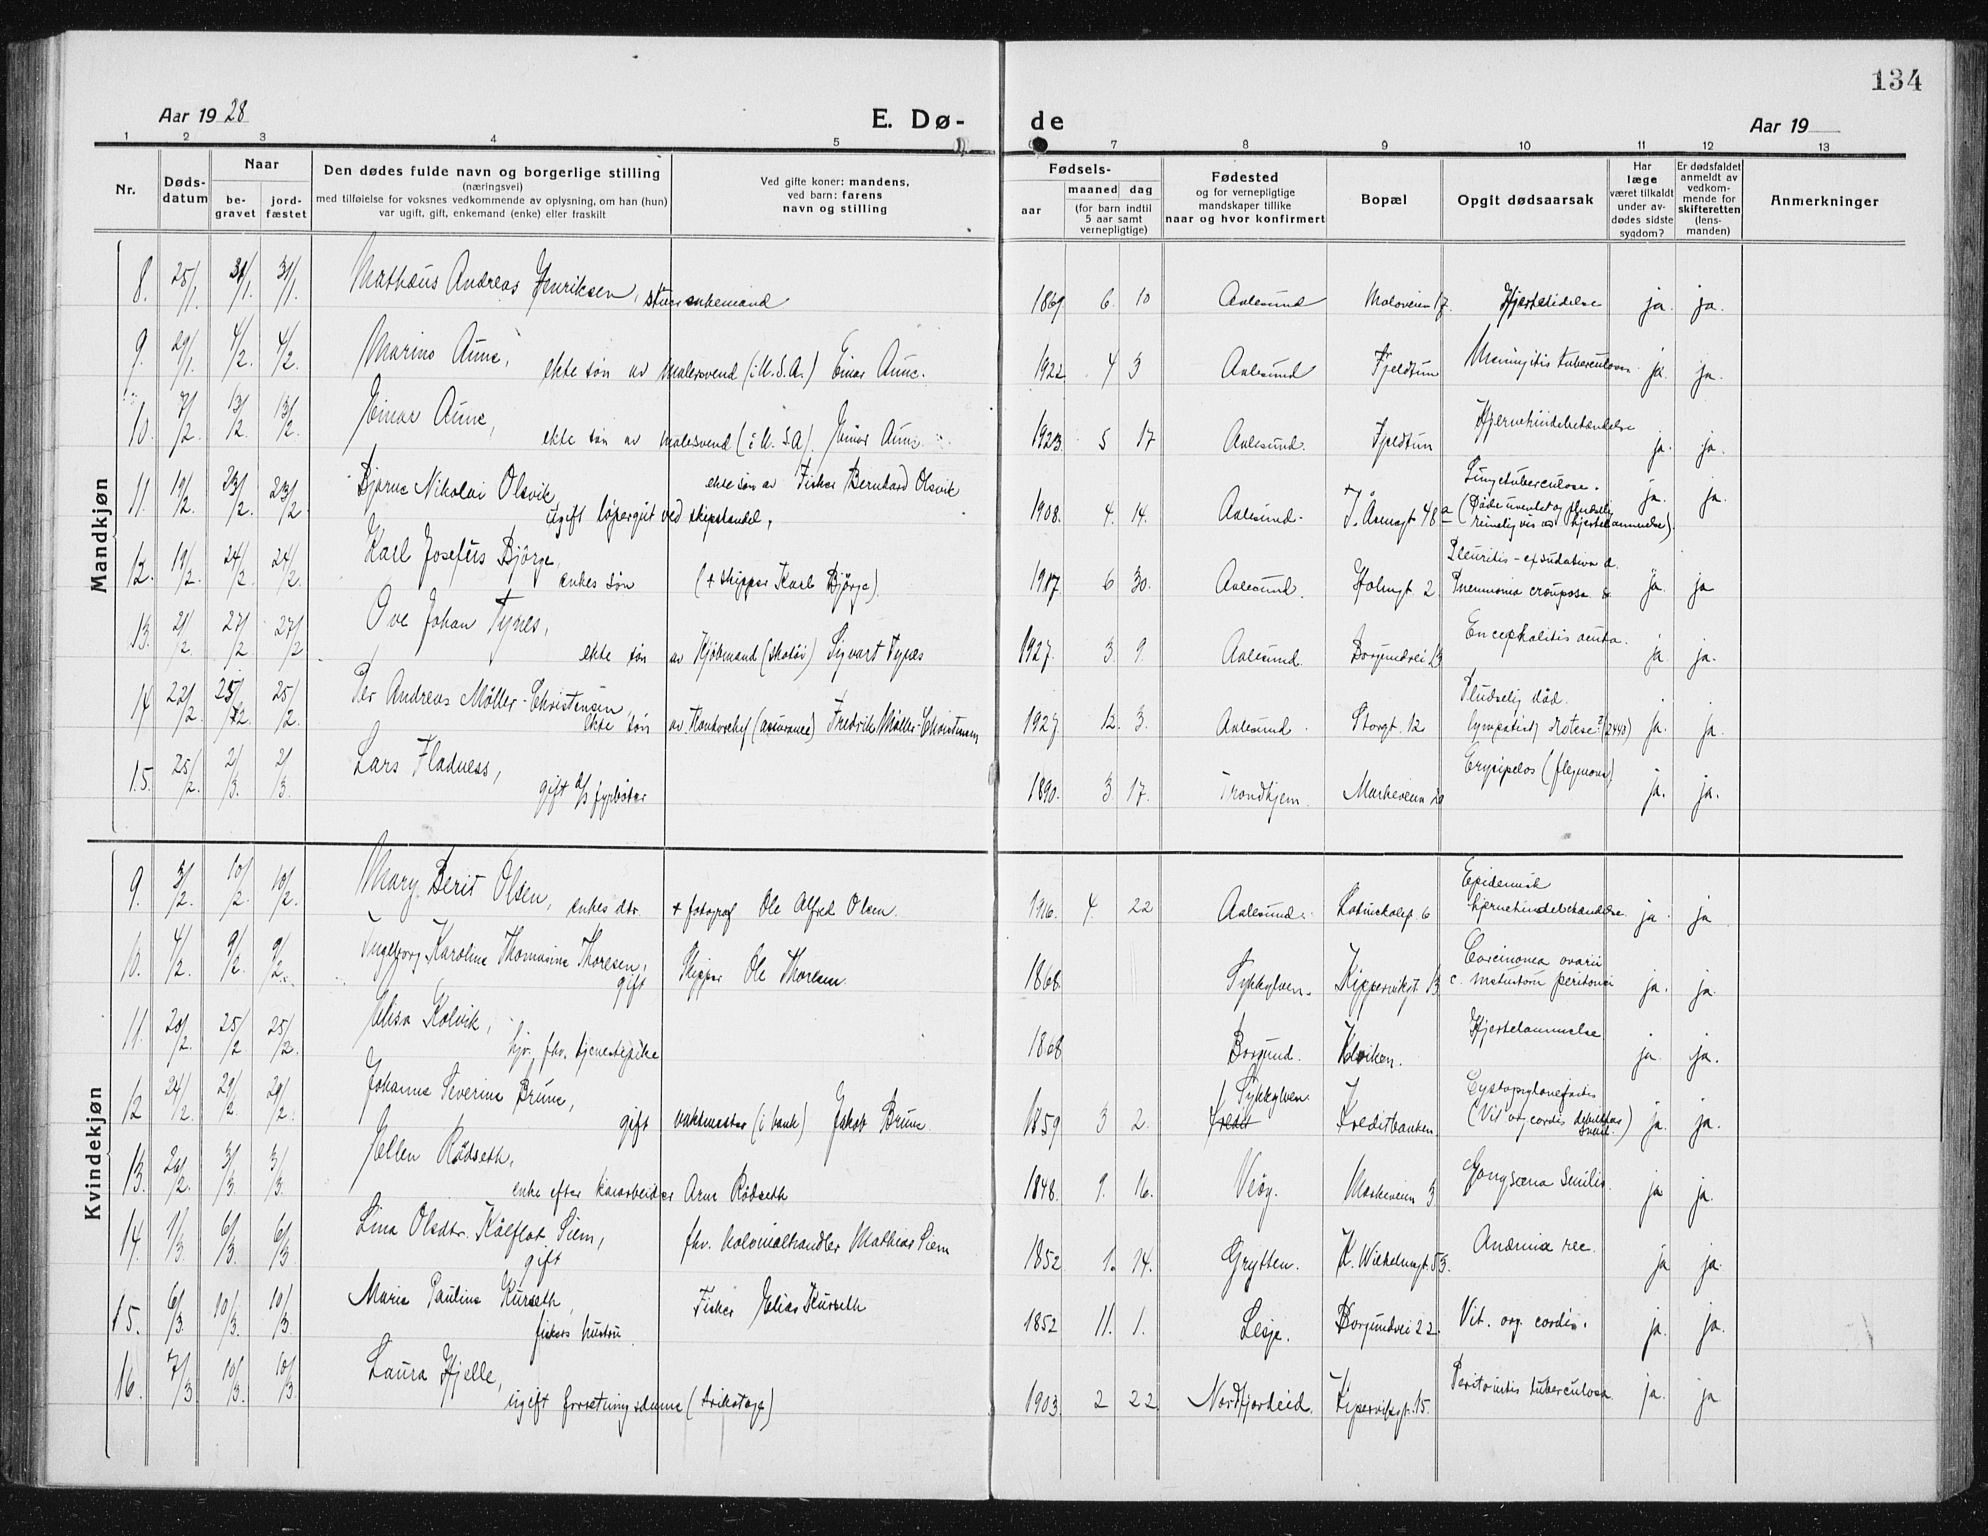 134
Aar 1928
E. Dø-
de
Aar 19
1 2 3 4 5 7 8 9 10 11 12 13
Nr.
Døds-
datum
Naar
be-
gravet
jord-
fæstet
Den dødes fulde navn og borgerlige stilling
(næringsvei)
med tilføielse for voksnes vedkommende av oplysning, om han (hun)
var ugift, gift, enkemand (enke) eller fraskilt
Ved gifte koner: mandens,
ved barn: farens
navn og stilling
Fødsels-
aar
maaned dag
(for barn indtil
5 aar samt
vernepligtige)
Fødested
og for vernepligtige
mandskaper tillike
naar og hvor konfirmert
Bopæl
Opgit dødsaarsak
Har
læge
været tilkaldt
under av-
dødes sidste
sygdom?
Er dødsfaldet
anmeldt av
vedkom-
mende for
skifteretten
(lens-
manden)
Anmerkninger
Mandkjøn
8. 25/1. 31/1. 31/1. Mathæus Andreas Henriksen, enkemand 1869 6. 10 Aalesund Moloveien 17. Hjertelidelse ja. ja.
9. 29/1. 4/2. 4/2. Marino Aune, ekte søn av Malersvend (i U.S.A.) Einar Aune. 1922 4 3 Aalesund Fjeldtun Meningitis tuberculosa ja. ja.
10. 7/2. 13/2. 13/2. Einar Aune, ekte søn av Malersvend (i U.S.A). Einar Aune 1923 5 17 Aalesund. Fjeldtun Hjernehindebetændelse ja. ja.
11. 19/2. 23/2. 23/2. Bjarne Nikolai Olsvik, ekte søn av Fisker Bernhard Olsvik
ugift løpergut ved skipshandel, 1908. 4. 14. Aalesund. J. Aasengt 48 a Lungetuberculose. (Døde uventet og pludselig
rimeligvis av hjertelammelse). ja. ja.
12. 19/2. 24/2. 24/2. Karl Josefus Bjørge, enkes søn (+ skipper Karl Bjørge). 1917 6 30. Aalesund. Holmgt. 2 Pleuritis - exsudativa d.
Pneumonia crouposa ja. ja
13. 21/2. 27/2. 27/2 Ove Johan Tynes, ekte søn av Kjøbmand (skotøi) Sigvart Tynes 1927. 3. 9. Aalesund. Borgundvei 13 Encephalitis acuta. ja ja.
14 22/2 25/2. 25/2. Per Andreas Møller-Christensen ekte søn av Kontorchef (assurance) Fredrik Møller-Christensen 1927 12. 3. Aalesund Storgt. 12 Pludselig død. ja. ja.
15. 25/2. 2/3. 2/3. Lars Fladness, gift fyrbøter 1890. 3. 17. Trondhjem. Markeveien 20 Erysipelas (flegmone) ja. ja.
Kvindekjøn
9. 3/2. 10/2. 10/2. Mary Berit Olsen, enkes dtr. + fotograf Ole Alfred Olsen. 1916. 4. 22 Aalesund. Latinskolegt 6 Epidemisk
hjernehindebetændelse. ja. ja
10. 4/2. 9/2. 9/2. Ingeborg Karoline Thomasine Thoresen, gift Skipper Ole Thoresen 1868. Sykkylven. Kippervikgt 13 Carcinoma ovarii
c. metastom peritonei ja. ja.
11. 20/2. 25/2 25/2. Elisa Kolvik, fhv. tjenestepike 1868 Borgund. Kolviken. Hjertelammelse ja. ja.
12 24/2. 29/2. 29/2. Johanna Severine Brune, gift vaktmester (i bank) Jakob Brune. 1859 3 2. Sykkylven. Kreditbanken. Cystopyelonefritis
(Vit. org. cordis ) ja. ja.
13. 26/2. 3/3. 3/3. Ellen Rødseth, enke efter Arne Rødseth 1848. 9. 16. Veøy. Markeveien 3 Gangræna senilis. ja ja.
14. 1/3. 6/3. 6/3. Lina Olsdtr. Kålflot Siem, gift fhv. kolonialhandler Mathias Siem 1852 1. 14. Grytten. K. Wilhelmsgt. 53. Anæmia rec. ja ja.
15. 6/3. 10/3. 10/3. Marie Pauline Kurseth, fiskers hustru Fisker Elias Kurseth 1852 11. 1. Lesje. Borgundvei 22. Vit. org. cordis. ja. ja.
16. 7/3 10/3. 10/3. Laura Hjelle, ugift forretningsdame (trikotage) 1903. 2 22 Nordfjordeid. Kipervikgt. 15. Peritonitis tuberculosa ja. ja